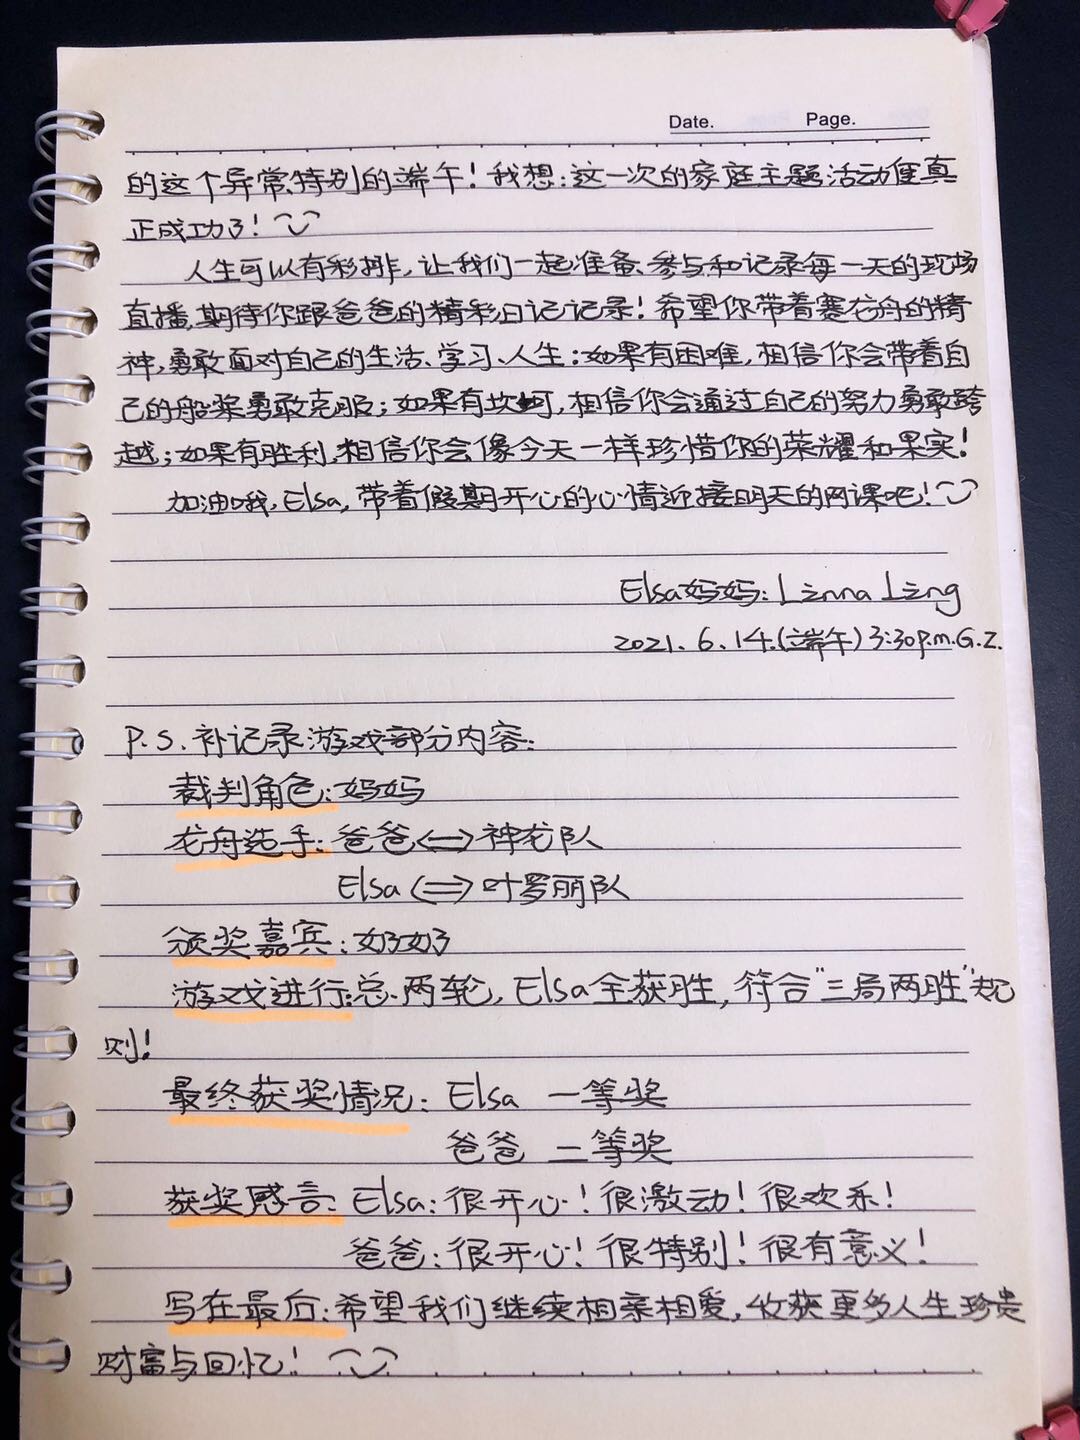 Date. Page.
的这个异常特别的端午！我想：这一次的家庭主题活动便真
正成功了！
人生可以有彩排，让我们一起准备、参与和记录每一天的现场
直播，期待你跟爸爸的精彩日记记录！希望你带着赛龙舟的精
神，勇敢面对自己的生活、学习、人生：如果有困难，相信你会带着自
己的船桨勇敢克服；如果有坎坷，相信你会通过自己的努力勇敢跨
越；如果有胜利，相信你会像今天一样珍惜你的荣耀和果实！
加油哦，Elsa，带着假期开心的心情迎接明天的网课吧！
Elsa妈妈：Linna Ling
2021.6.14.(端午)3:30p.m.G.Z.
P.S.补记录游戏部分内容：
裁判角色：妈妈
龙舟选手：爸爸⇔神龙队
Elsa⇔叶罗丽队
颁奖嘉宾：奶奶
游戏进行：总两轮，Elsa全获胜，符合"三局两胜"规
则！
最终获奖情况：Elsa 一等奖
爸爸 二等奖
获奖感言：Elsa：很开心！很激动！很欢乐！
爸爸：很开心！很特别！很有意义！
写在最后：希望我们继续相亲相爱，收获更多人生珍贵
财富与回忆！